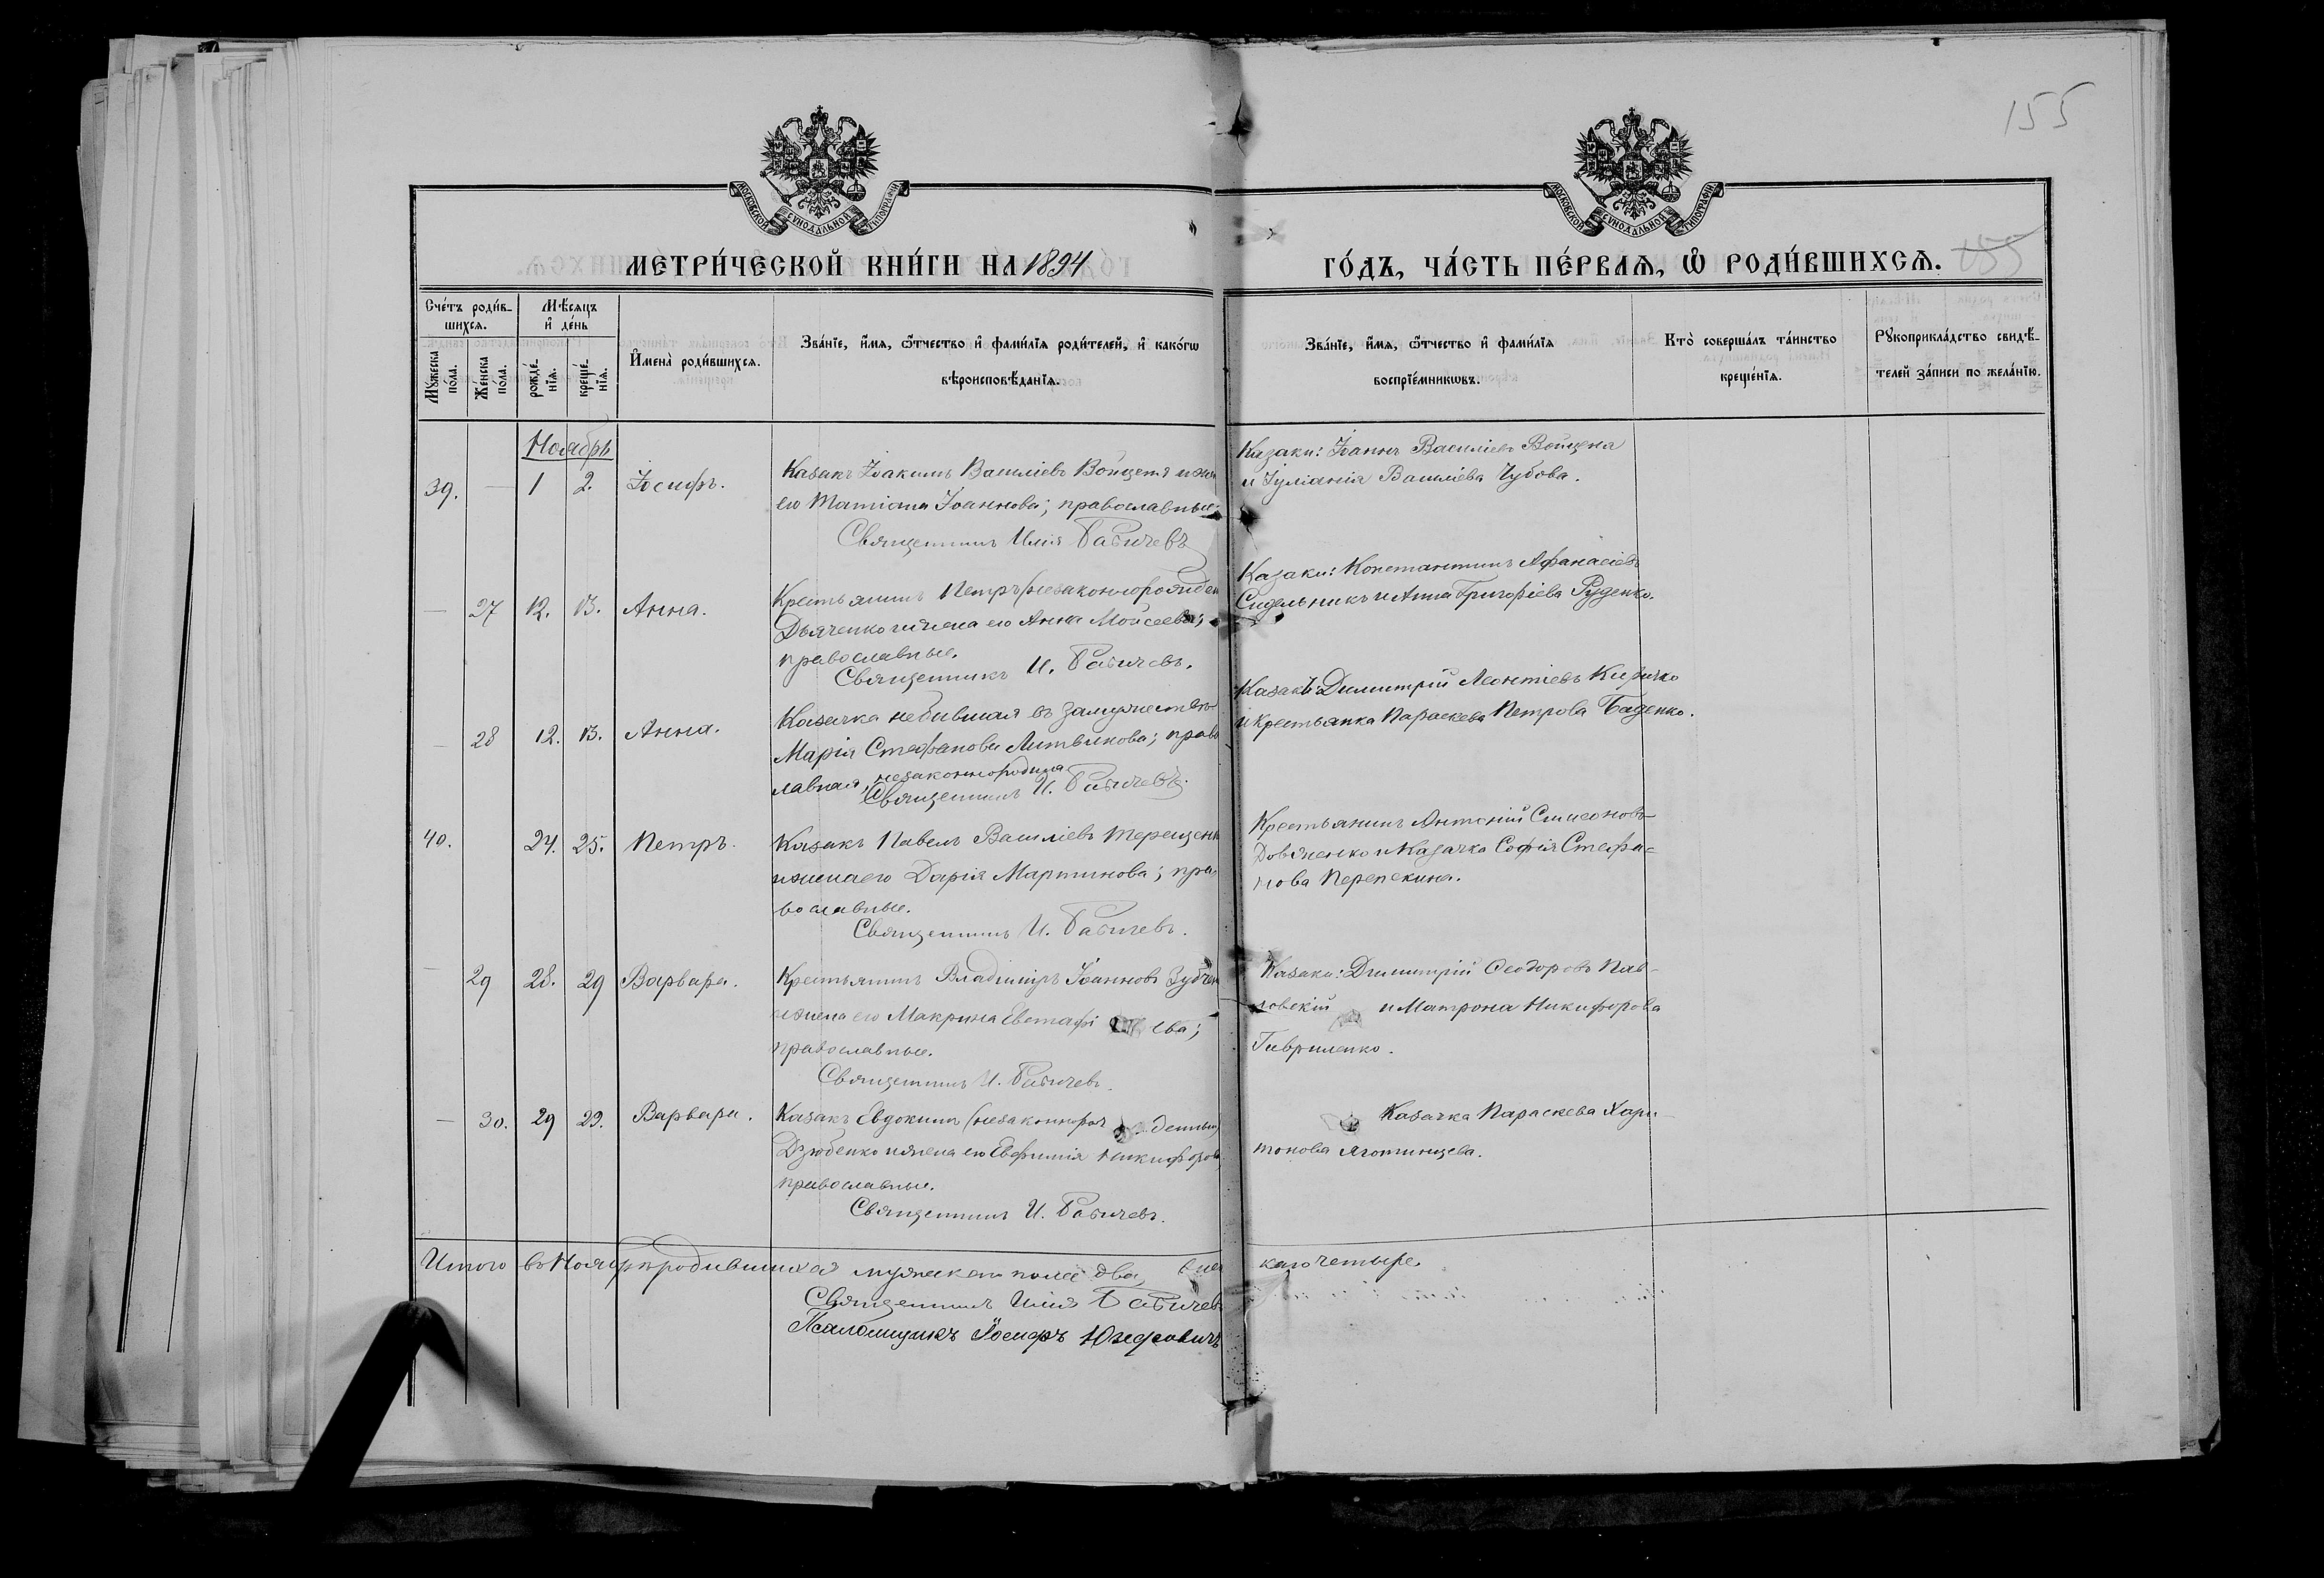 155
МОСКОВСКОЙ СУНОДАЛЬНОЙ ТИПОГРАФІИ
МОСКОВСКОЙ СУНОДАЛЬНОЙ ТИПОГРАФІИ
МЕТРИ́ЧЕСКОЙ КНИ́ГИ НА 1894
ГО́ДЪ, ЧА́СТЬ ПЕ́РВАѦ, Ѡ҆ РОДИ́ВШИХСѦ. 155
Сче́тъ роди́в-
шихсѧ.
Мꙋ́жеска по́ла.
Же́нска по́ла.
Мѣ́сѧцъ и҆ де́нь
рожде́-
нїѧ.
креще́-
нїѧ.
И҆мена̀ роди́вшихсѧ.
Зва́нїе, и҆́мѧ, ѻ҆́тчество и҆ фами́лїѧ роди́телей, и҆ како́гѡ
вѣроисповѣ́данїѧ.
Зва́нїе, и҆́мѧ, ѻ҆́тчество и҆ фами́лїѧ
воспрїе́мникѡвъ.
Кто̀ соверша́лъ та́инство
креще́нїѧ.
Рꙋкоприкла́дство свидѣ́-
телей за́писи по жела́нїю.
Ноябрь
39. — 1 2. Іосифъ.
Казакъ Іоакимъ Василіевъ Войценя и жена
его Татіана Іоаннова; православные.
Священникъ Илія Бабичевъ
Казаки: Іоаннъ Василіевъ Войценя
и Іуліанія Василіева Чубова.
— 27 12. 13. Анна.
Крестьянинъ Петръ (незаконнорожден
Дьяченко и жена его Анна Мойсеева;
православные.
Священникъ И. Бабичевъ.
Казаки: Константинъ Афанасіевъ
Сидельникъ и Анна Григоріева Руденко.
— 28 12. 13. Анна.
Казачка небывшая въ замужествѣ
Марія Стефанова Литвинова; право
лавная, незаконнородила
Священникъ И. Бабичевъ.
Казакъ: Димитрій Леонтіевъ Киричко
и крестьянка Параскева Петрова Баденко.
40. 24. 25. Петръ.
Казакъ Павелъ Василіевъ Терещенк
и жена его Дарія Мартинова; пра-
вославные.
Священникъ И. Бабичевъ.
Крестьянинъ Антоній Симеоновъ
Довженко и Казачка Софія Стефа-
нова Перепекина.
— 29 28. 29 Варвара.
Крестьянинъ Владиміръ Іоанновъ Зубчен
и жена его Макрина Евстафі ева;
православные.
Священникъ И. Бабичевъ.
Казаки: Димитрій Ѳеодоровъ Пав-
ловскій и Матрона Никифорова
Гавриленко.
— 30. 29 29. Варвара.
Казакъ Евдокимъ (незаконнорож денный)
Дзюбенко и жена его Евфимія Никифоров
православные.
Священникъ И. Бабичевъ.
Казачка Параскева Хари-
тонова Яготинцева.
Итого въ Ноябрѣ родившихся мужеска пола два, жен
скаго четыре.
Священникъ Илія Бабичевъ
Псаломщикъ Іосифъ